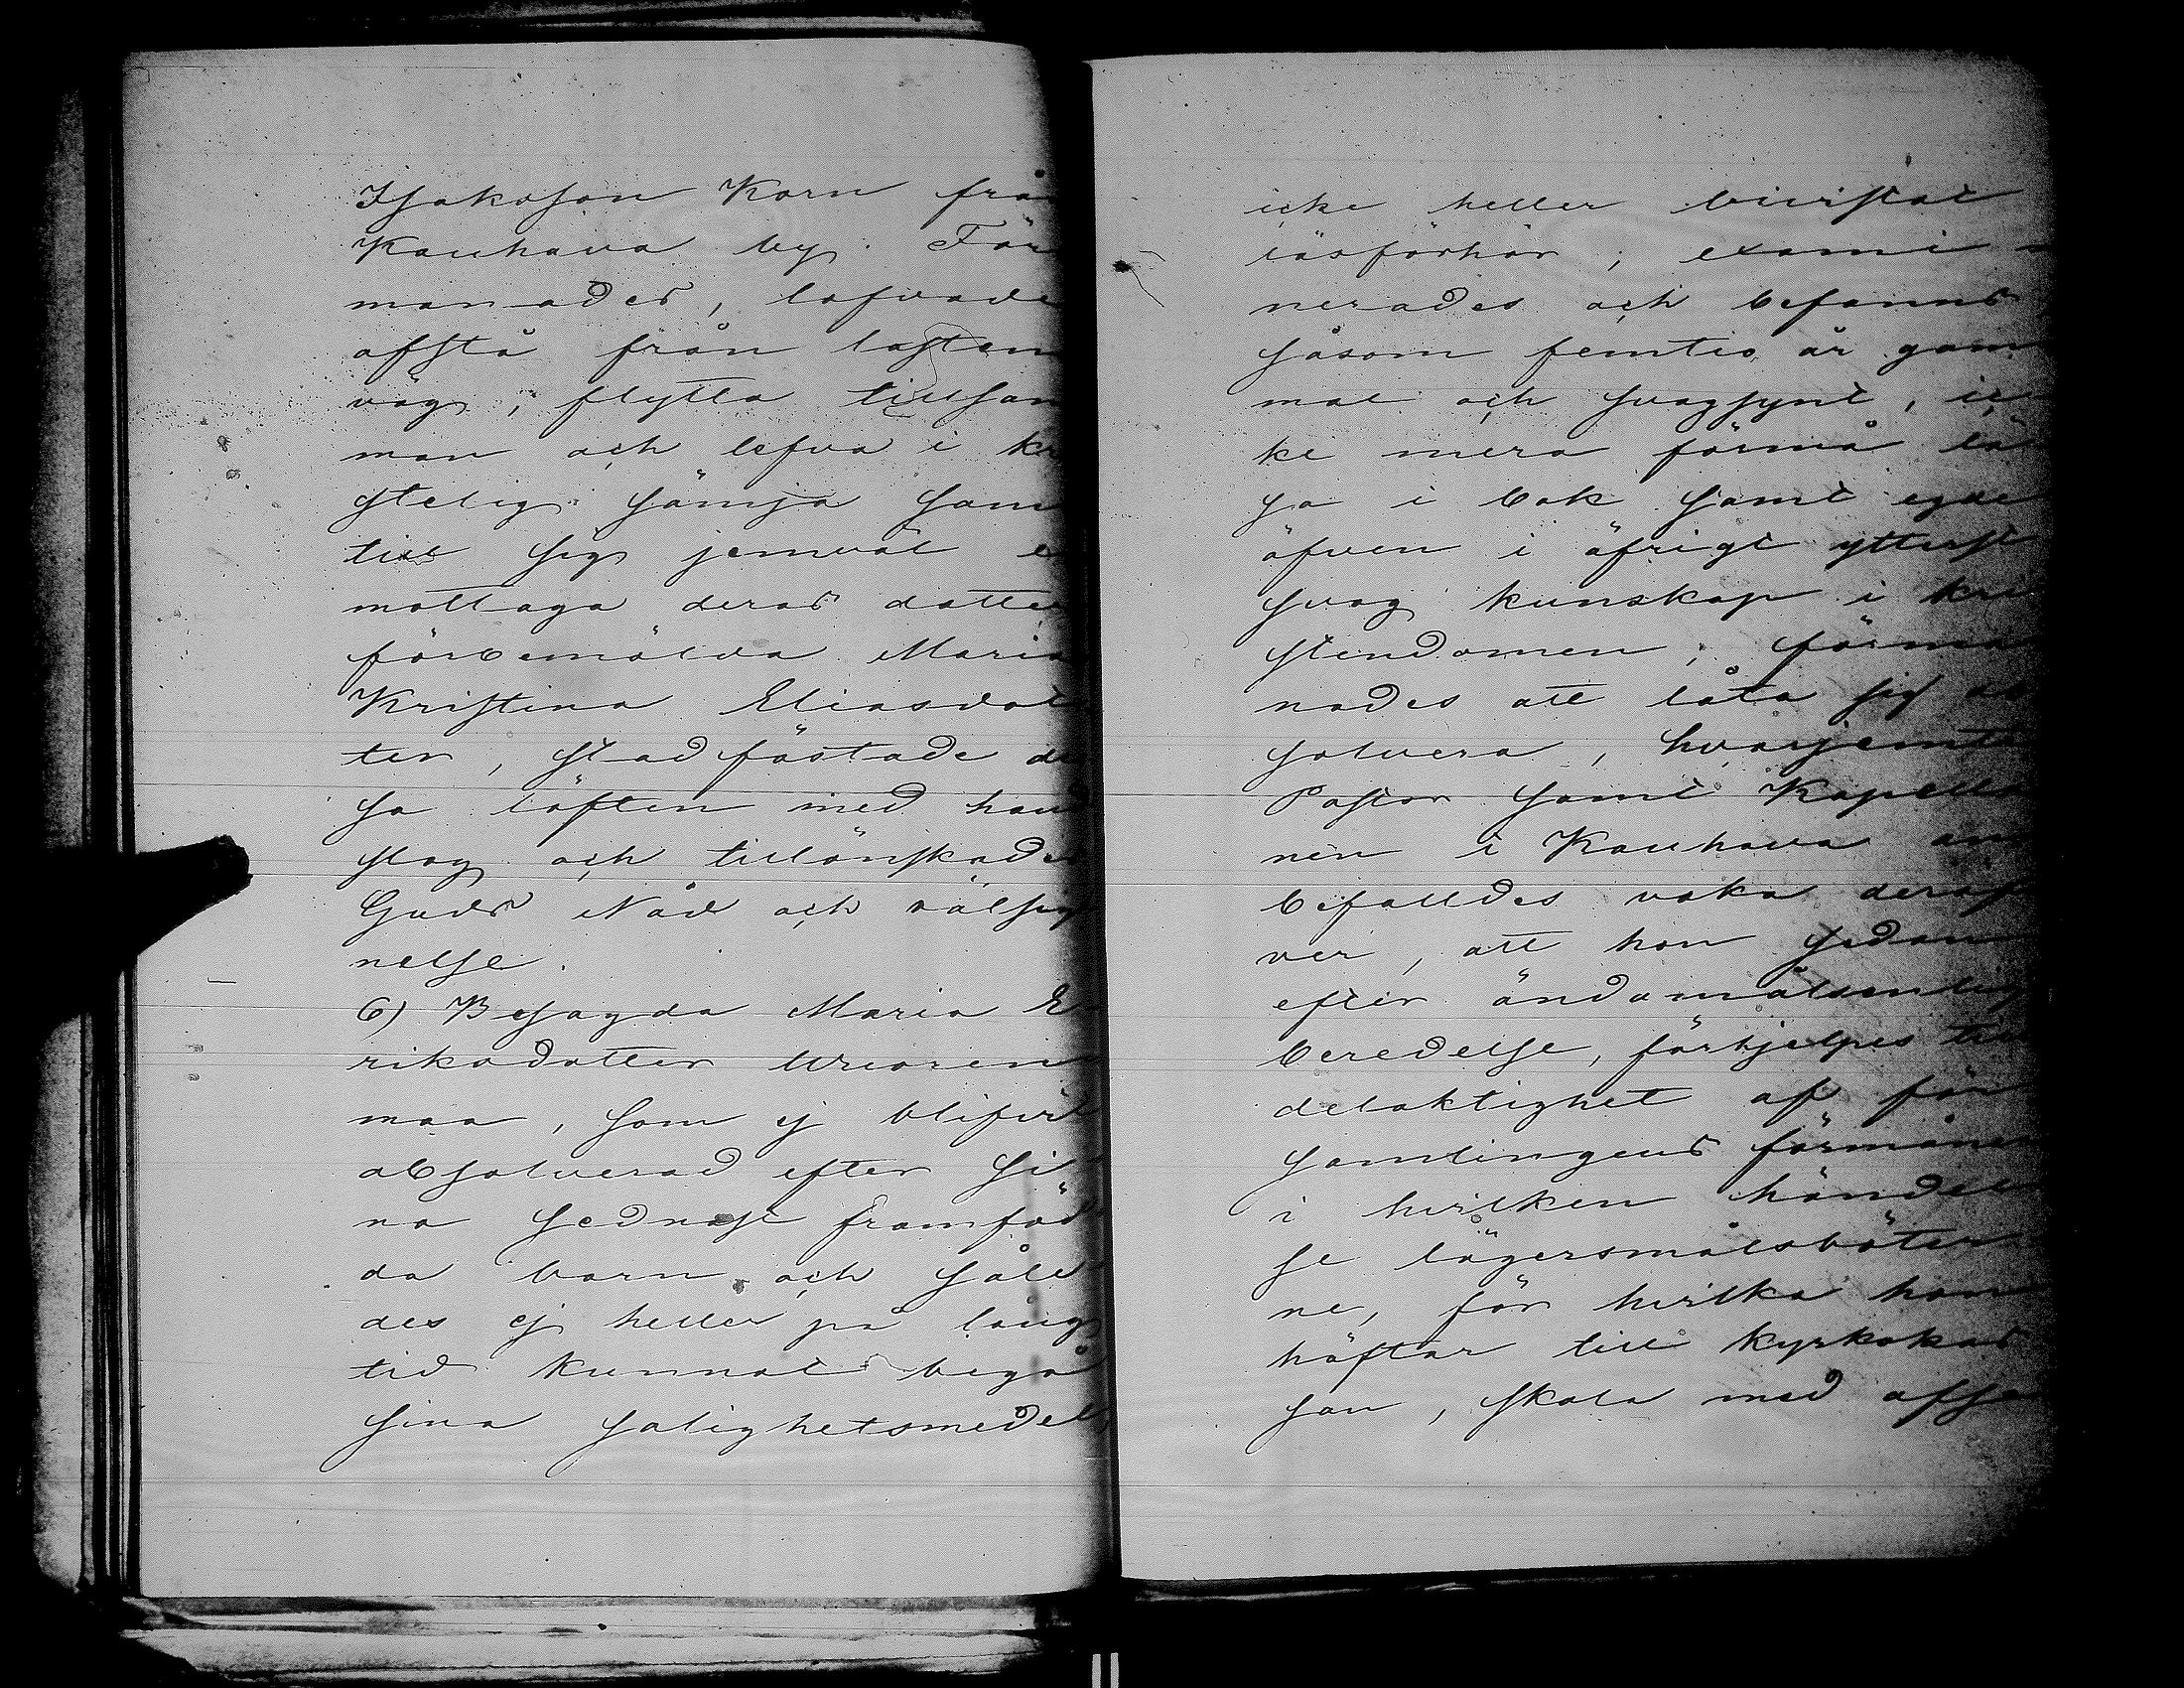 Isaksson Korn från
Kauhava by. För
manades, lofvade
afstå från lasten
väg, flytta tillsam
man och lefva i kri
stelig sämja samt
till sig jemväl e
mottaga deras dotter
förbemälda Maria
Kristina Eliasdot
ter, stadfästade des
sa löften med hand
slag och tillönskades
Guds Nåd och välsig
nelse.
6) Besagda Maria E
riksdotter
maa, som ej blifvit
absolverad efter si
na sednast framföd
da barn och såle
des ej heller på lång
tid kunnat begå
sina salighetsmedel,
icke heller bivistat
läsförhör; exami-
nerades och befanns
såsom femtio år gam
mal och svagsynt, ic
ke mera förmå lä
sa i bok samt egde
äfven i öfrigt ytterst
svag kunskap i kri
stendomen; förma
nades att låta sig ab
solvera, hvarjemte
Pastor samt Kapella
nen i Kauhava an
befalldes vaka deröf
ver, att hon sedan
efter ändamålsenlig
beredelse, förhjelpes till
delaktighet af för
samlingens förmåner
i hvilken händel
se lägersmålsböter
ne, för hvilka hon
häftar till kyrkokas
san, skola med afse